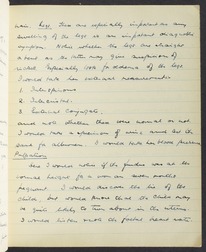 veins. Legs. These are especially important as any
swelling of the legs is an important diagnostic
symptom. Notice whether the legs are straight
& bent as the latter may give suspicion of
rickets. Especially look for oedema of the legs.
I would take her external measurements
1. Interspinous
2. Intercristal
3. External Conjugate
and note whether these were normal or not.
I would take a specimen of urine, and test the
same for albumen. I would take her blood pressure
Palpation
Here I would notice if the fundus was at the
normal height for a woman seven months
pregnant. I would discover the lie of the
child, but would know that the child may
quite likely to turn about in the uterus.
I would listen with the foetal heart